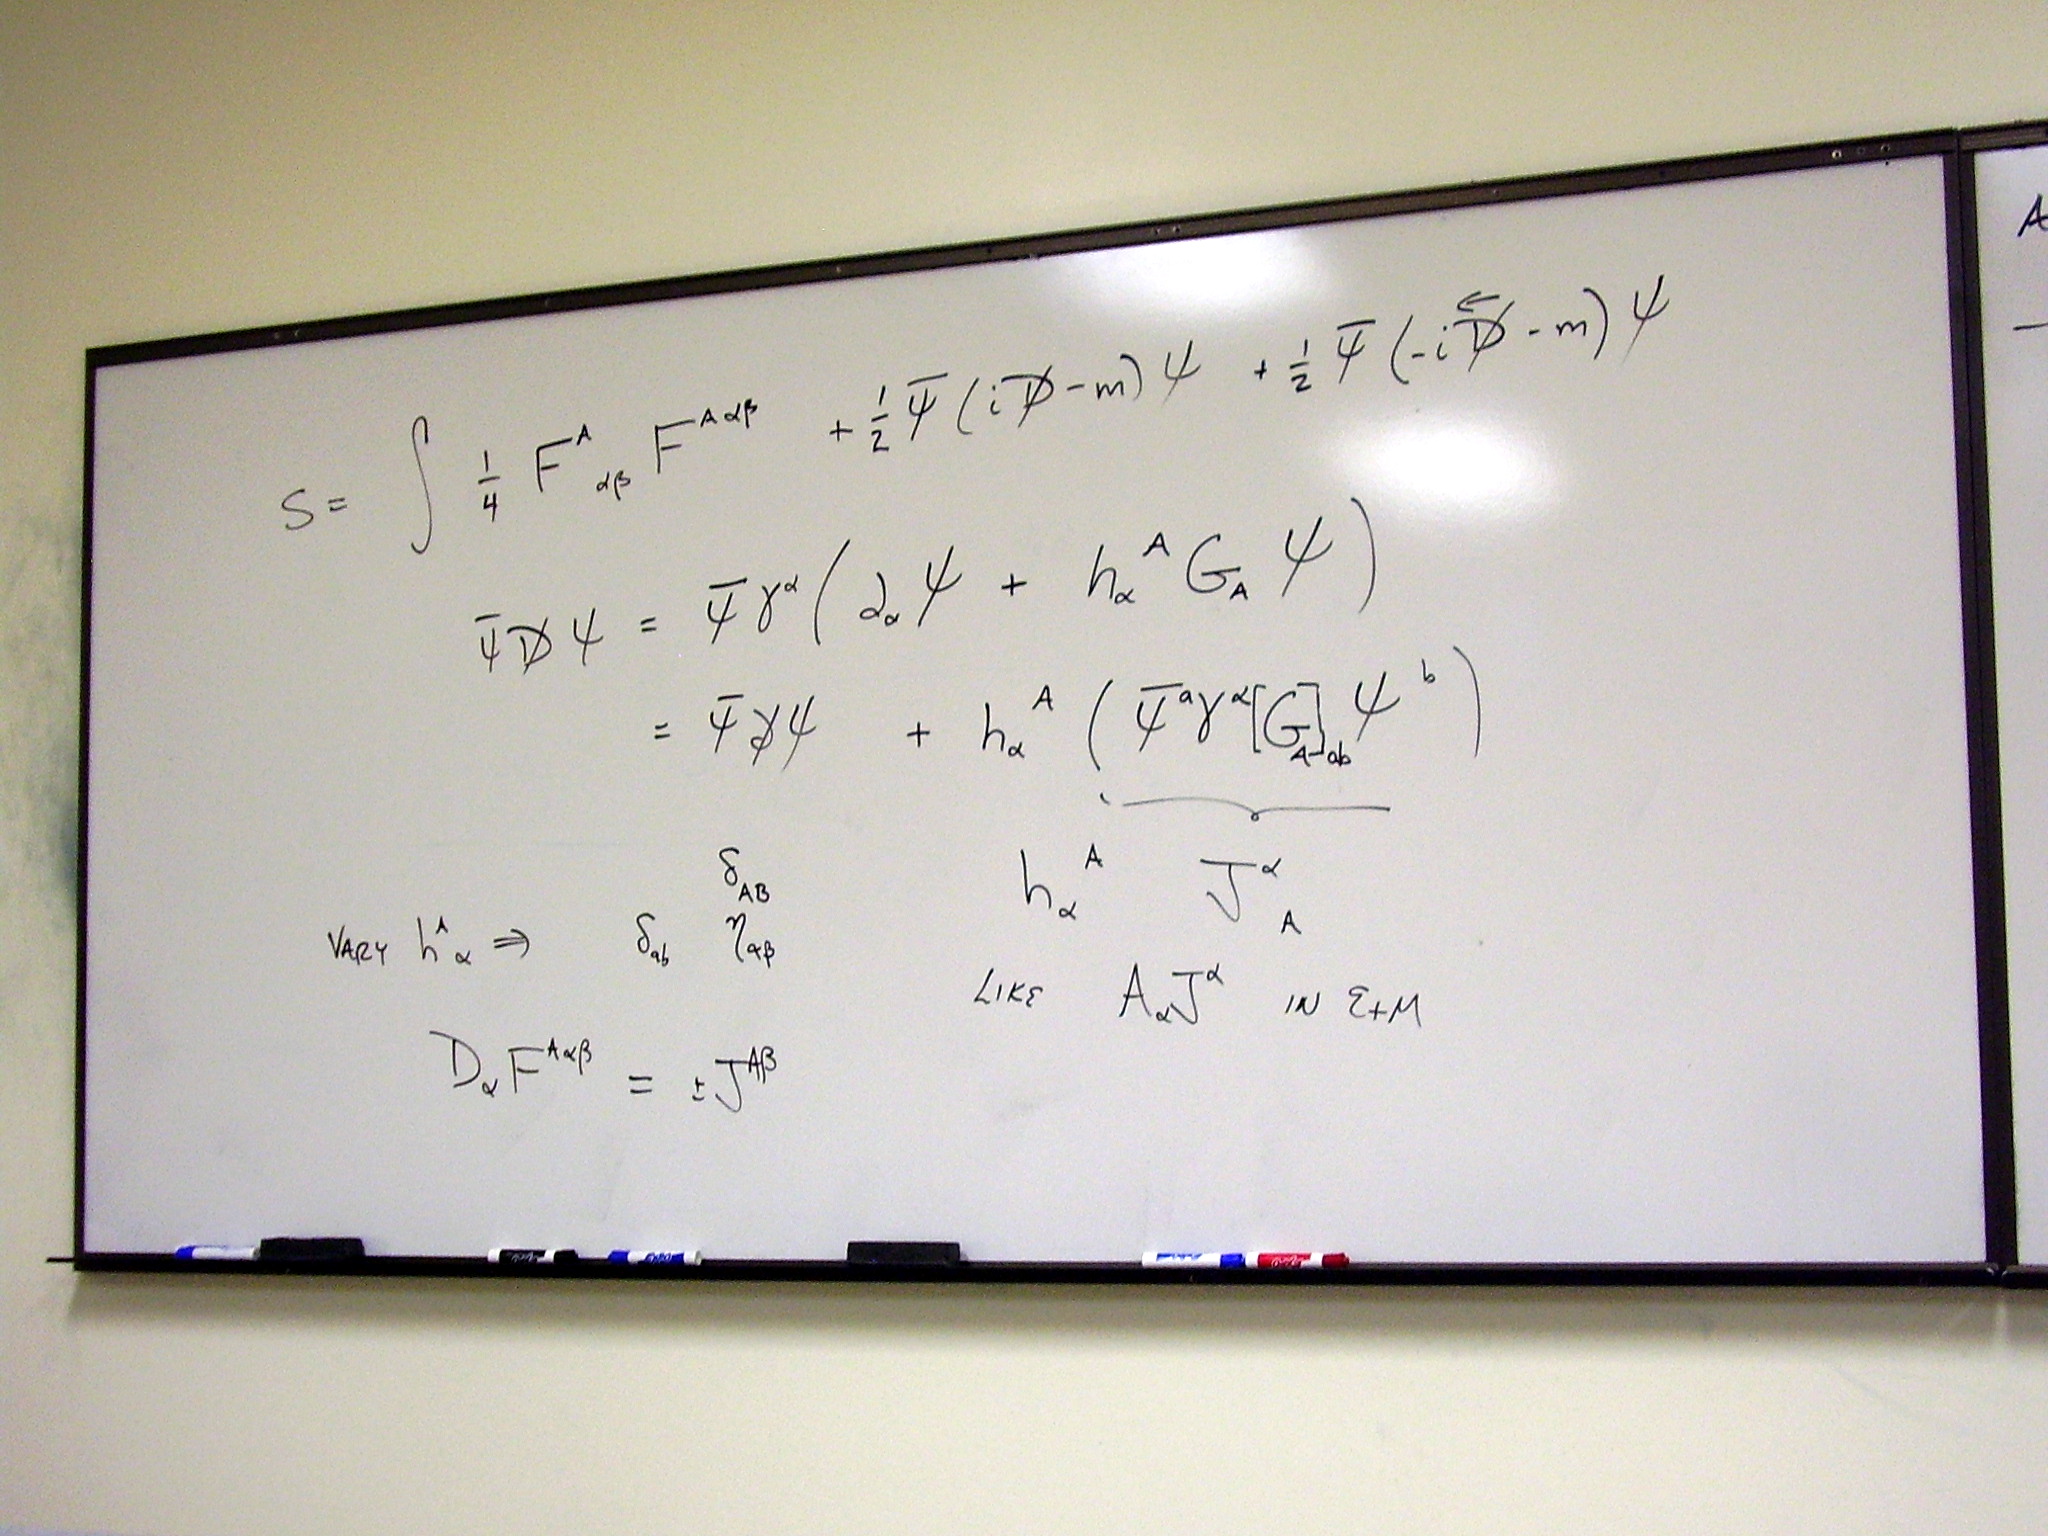 S = ∫ 1/4 F^A_αβ F^Aαβ + 1/2 Ψ̄ (i D̸ - m) Ψ + 1/2 Ψ̄ (-i D̸⃖ - m) Ψ
Ψ̄ D̸ Ψ = Ψ̄ γ^α ( ∂_α Ψ + h_α^A G_A Ψ )
= Ψ̄ ∂̸ Ψ + h_α^A ( Ψ̄^a γ^α [G_A]_ab Ψ^b )
h_α^A J^α_A
δ_AB
VARY h^A_α ⇒ δ_ab η_αβ
LIKE A_α J^α IN E+M
D_α F^Aαβ = ± J^Aβ
A